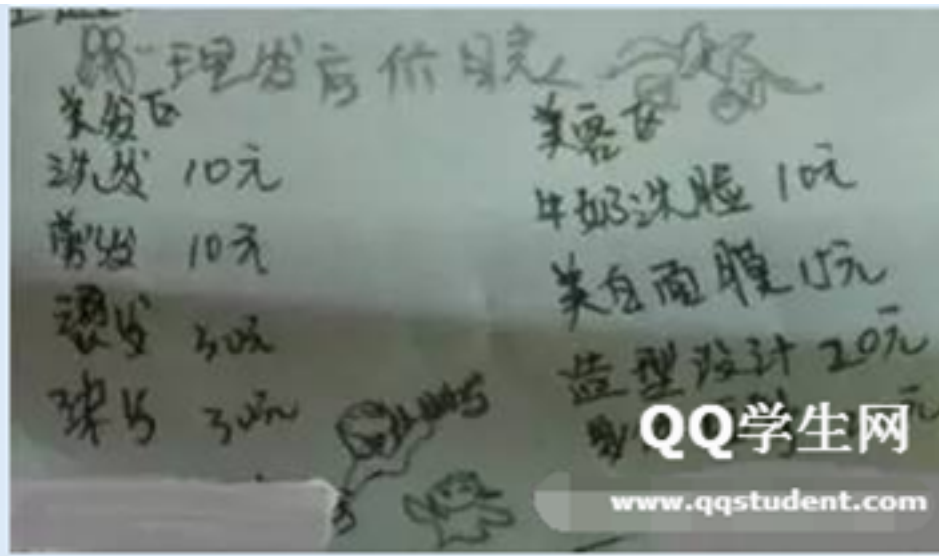 理发店价目表
美发区
洗发 10元
剪发 10元
烫发 30元
染发 30元
美容区
牛奶洗脸 10元
美白面膜 15元
造型设计 20元
元
QQ学生网
www.qqstudent.com